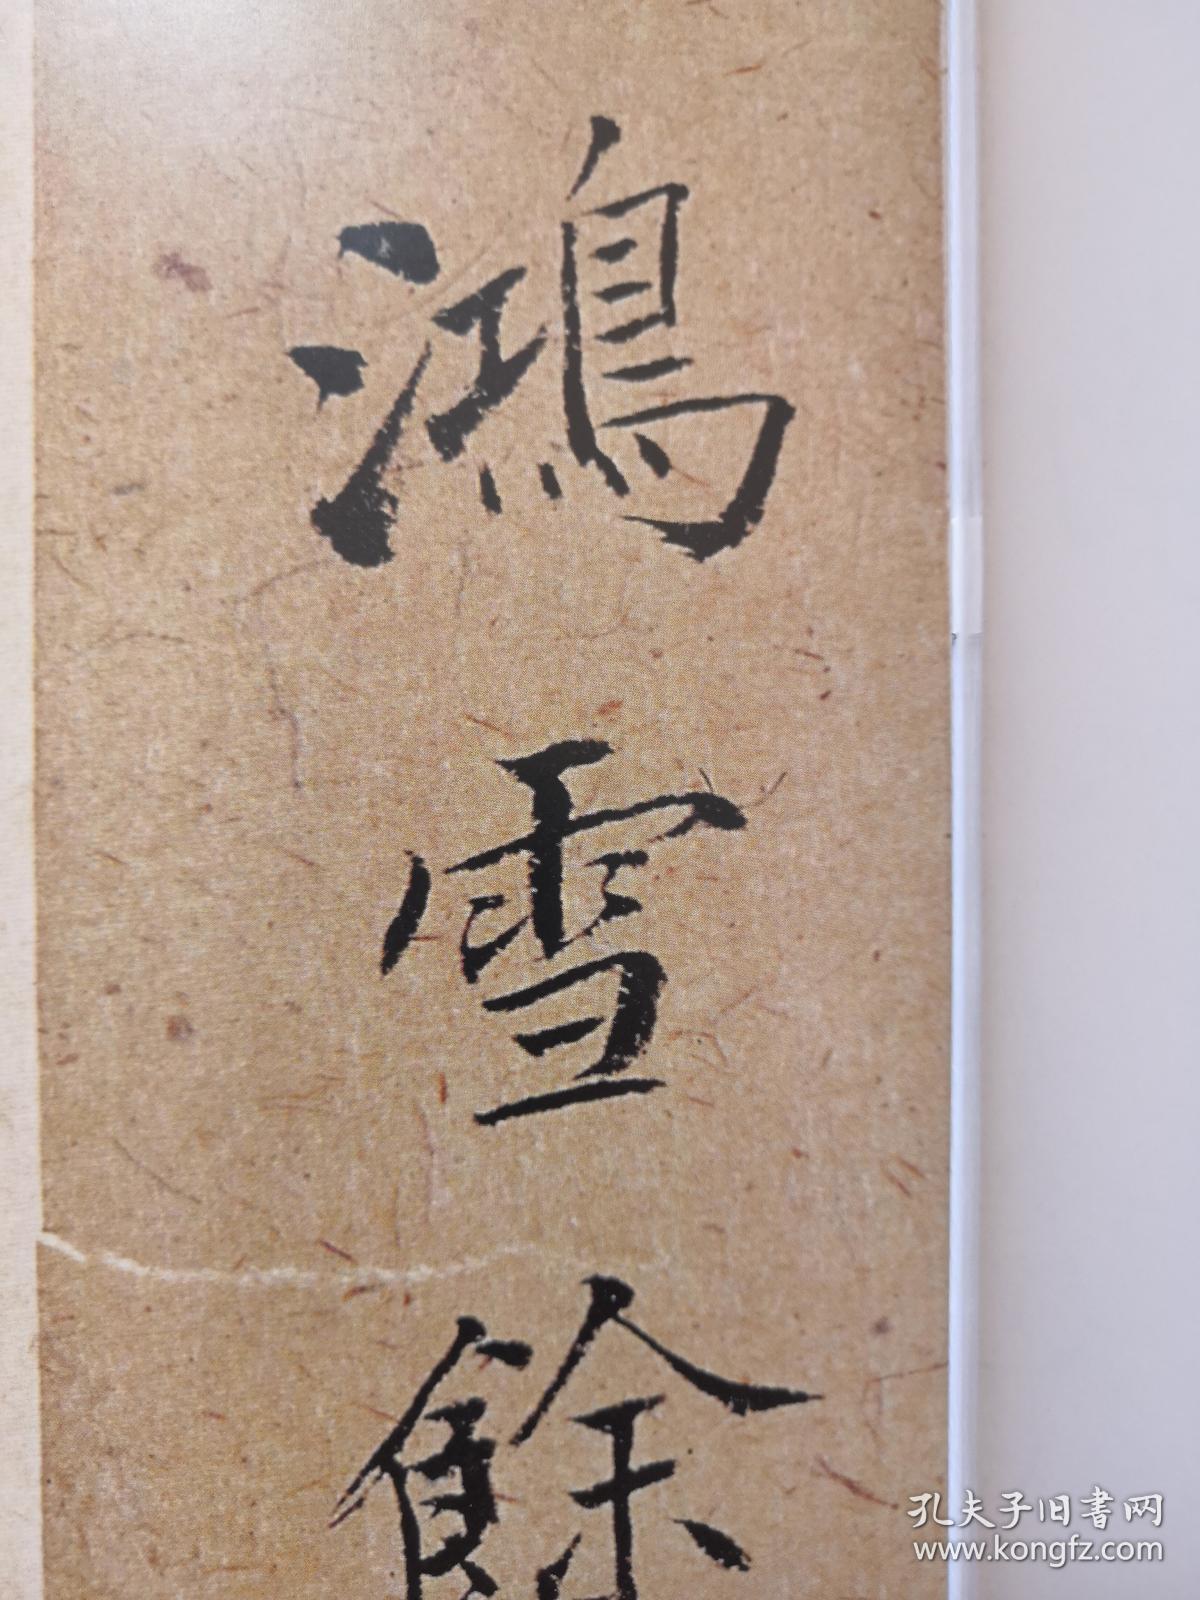 鴻雪餘
孔夫子旧书网
www.kongfz.com